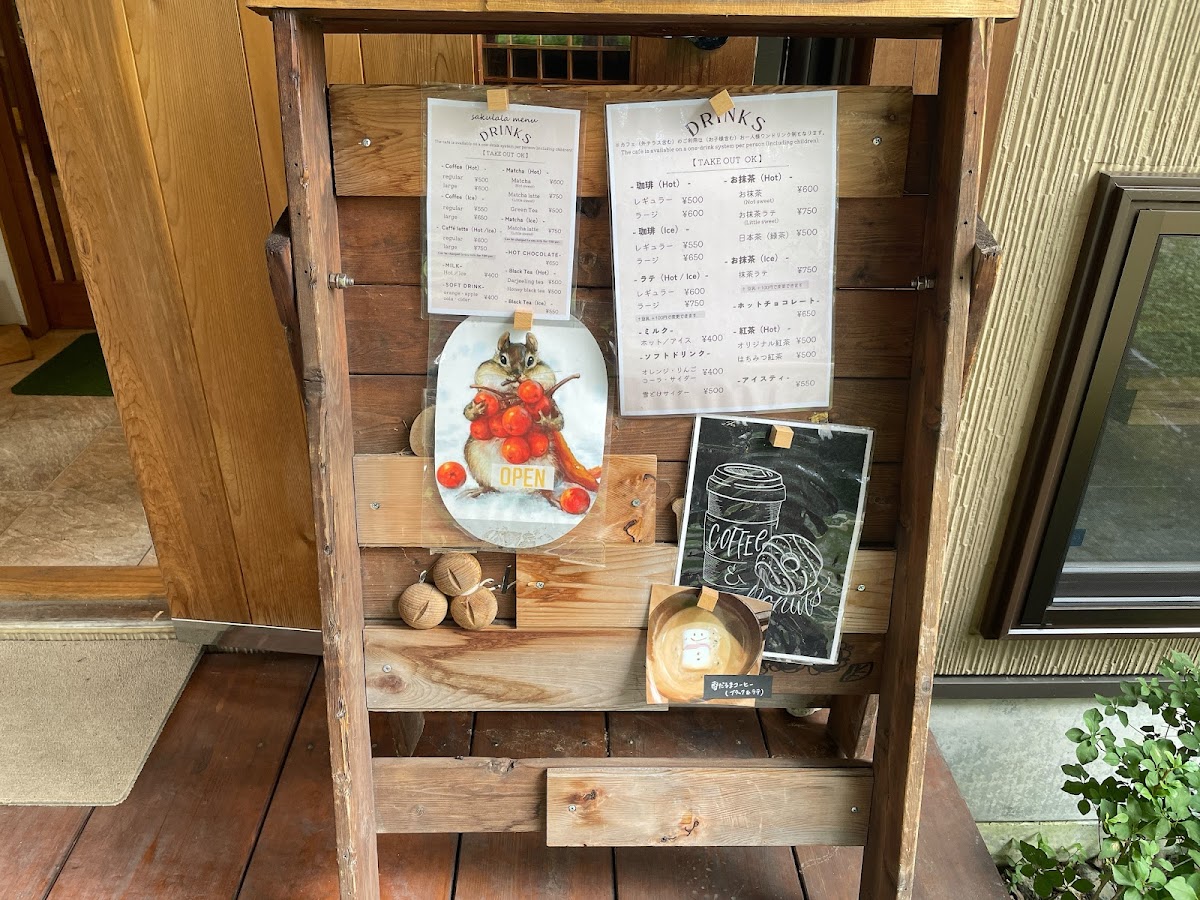 sakulala menu
DRINKS
The cafe is available on a one-drink system per person (including children).
【TAKE OUT OK】
- Coffee (Hot) -
regular ¥500
large ¥600
- Coffee (Ice) -
regular ¥550
large ¥650
- Caffé latte (Hot / Ice) -
regular ¥600
large ¥750
- MILK -
Hot / Ice ¥400
- SOFT DRINK -
orange・apple
cola・cider ¥400
- Matcha (Hot) -
Matcha ¥600
(Not sweet)
Matcha latte ¥750
(Little sweet)
Green Tea ¥500
- Matcha (Ice) -
Matcha latte ¥750
(Little sweet)
- HOT CHOCOLATE -
¥650
- Black Tea (Hot) -
Darjeeling tea ¥500
Honey black tea ¥500
- Black Tea (Ice)
¥550
DRINKS
※カフェ(外テラス含む)のご利用は(お子様含む)お一人様ワンドリンク制となります。
The cafe is available on a one-drink system per person (including children).
【TAKE OUT OK】
- 珈琲 (Hot) -
レギュラー ¥500
ラージ ¥600
- 珈琲 (Ice) -
レギュラー ¥550
ラージ ¥650
- ラテ (Hot / Ice) -
レギュラー ¥600
ラージ ¥750
+豆乳 +100円で変更できます。
- ミルク -
ホット/アイス ¥400
- ソフトドリンク -
オレンジ・りんご
コーラ・サイダー ¥400
雪どけサイダー ¥500
- お抹茶 (Hot) -
お抹茶 ¥600
(Not sweet)
お抹茶ラテ ¥750
(Little sweet)
日本茶 (緑茶) ¥500
- お抹茶 (Ice) -
抹茶ラテ ¥750
+豆乳 +100円で変更できます
- ホットチョコレート -
¥650
- 紅茶 (Hot) -
オリジナル紅茶 ¥500
はちみつ紅茶 ¥500
- アイスティ - ¥550
OPEN
COFFEE
&
Donuts
雪だるまコーヒー
(ブラック&ラテ)